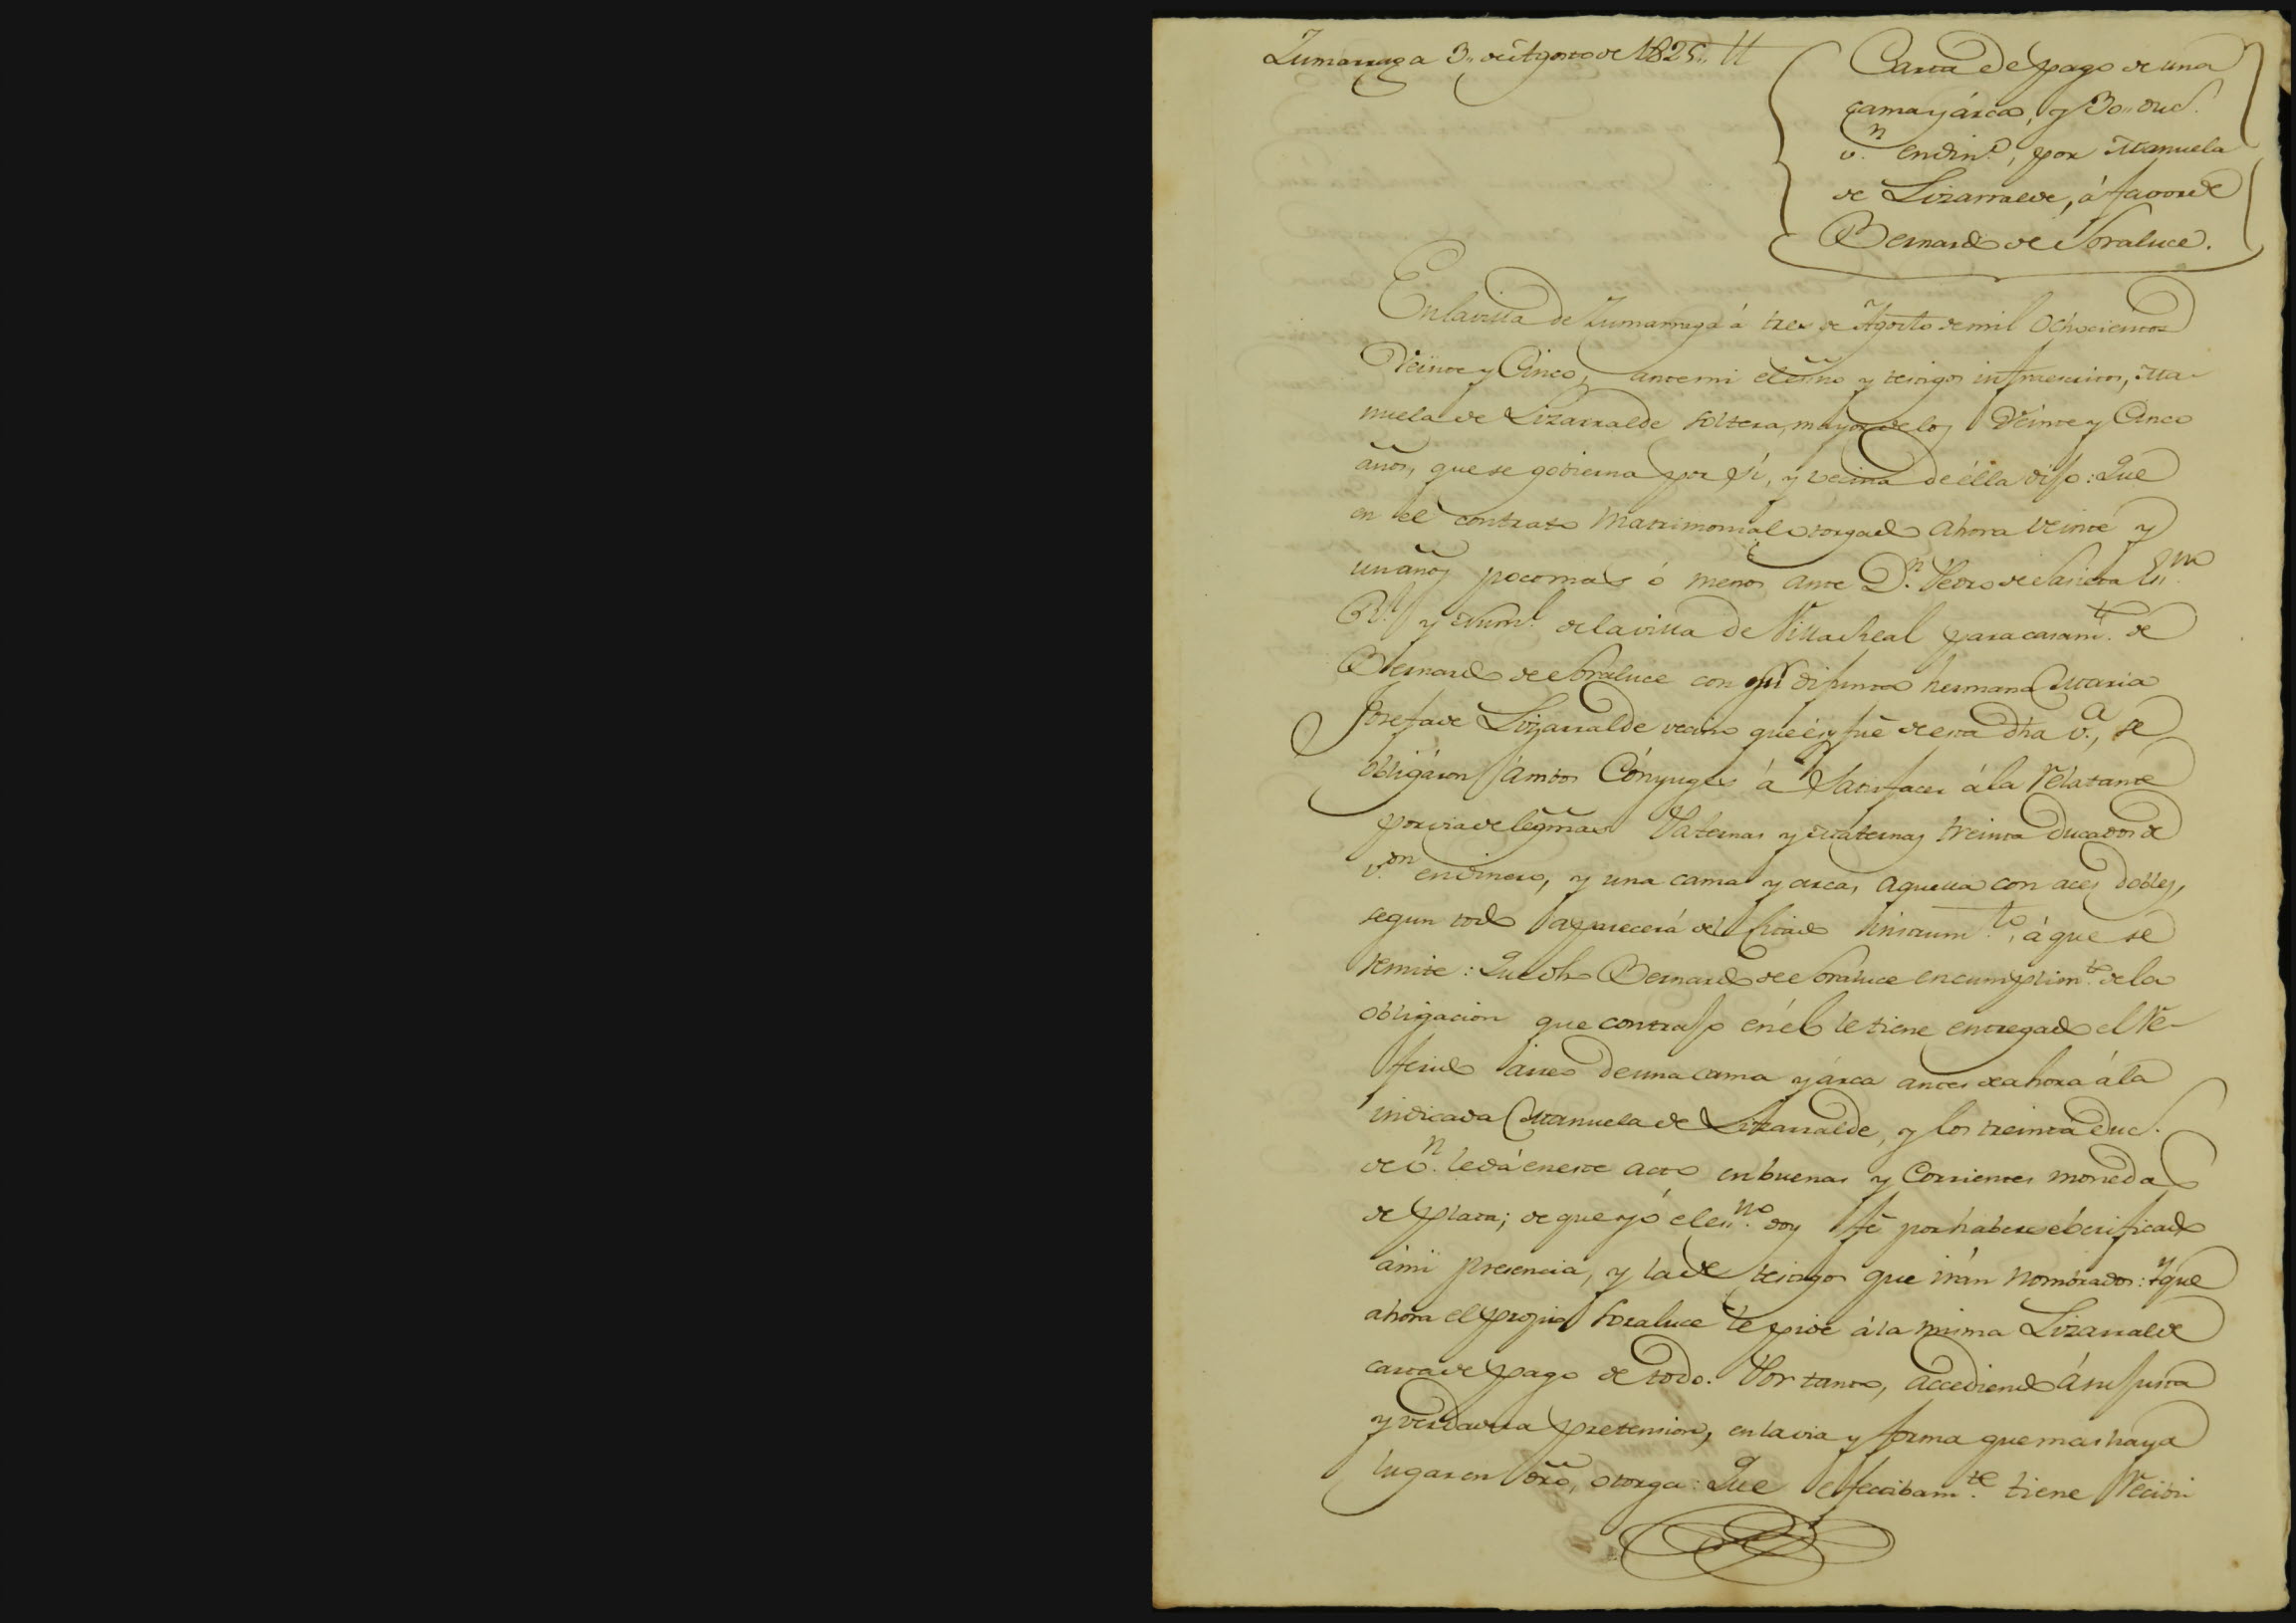 Zumarraga 3,, de Agosto de 1825,, //
Carta de pago de una
cama y árca, y 30,, duc.s
v.n en din.o, por Manuela
de Lizarralde, á favor de
Bernardo de Soraluce.
En la villa de Zumarraga á tres de Agosto de mil Ochocientos
Veinte y Cinco, ante mi el esño y testigos infraescritos, Ma-
nuela de Lizarralde soltera, mayor de los Veinte y Cinco
años, que se gobierna por si, y vecina de élla dijo: Que
en el contrato Matrimonial otorgado ahora veinte y
un años poco mas ó menos ante D.n Pedro de Esn.no
R.l y Num.l de la villa de Villa Real para casam.to de
Bernardo de Soraluce con su difunta hermana Maria
Josefa de Lizarralde vecino que és y fué de esta dha v.a, se
obligáron ámbos Cónyuges á Satisfacer á la relatante
por via de legmas Paternas y Maternas treinta Ducados de
v.on en dinero, y una cama y arca, aquella con aces dobles,
segun todo aparecerá del citado Instrum.to, á que se
remite: Que dho Bernardo de Soraluce en cumplim.to de la
obligacion que contrajo en él le tiene entregado el re-
ferido arreo de una cama y árca antes de ahora á la
indicada Manuela de Lizarralde, y los treinta duc.s
de v.n le dá en este acto en buenas y Corrientes monedas
de plata; de que yó el es.no doy fé por haberse berificado
á mi presencia, y la de testigos que irán nombrados: Y que
ahora el propio Soraluce le pide á la misma Lizarralde
carta de pago de todo. Por tanto, accediendo á su justa
y verdadera pretension, en la via y forma que mas haya
lugar en dro, otorga: Que efectibam.te tiene recibi